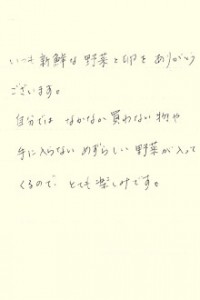 いつも新鮮な野菜と卵をありがとう
ございます。
自分では なかなか買わない物や
手に入らない めずらしい野菜が入って
くるので、とても楽しみです。